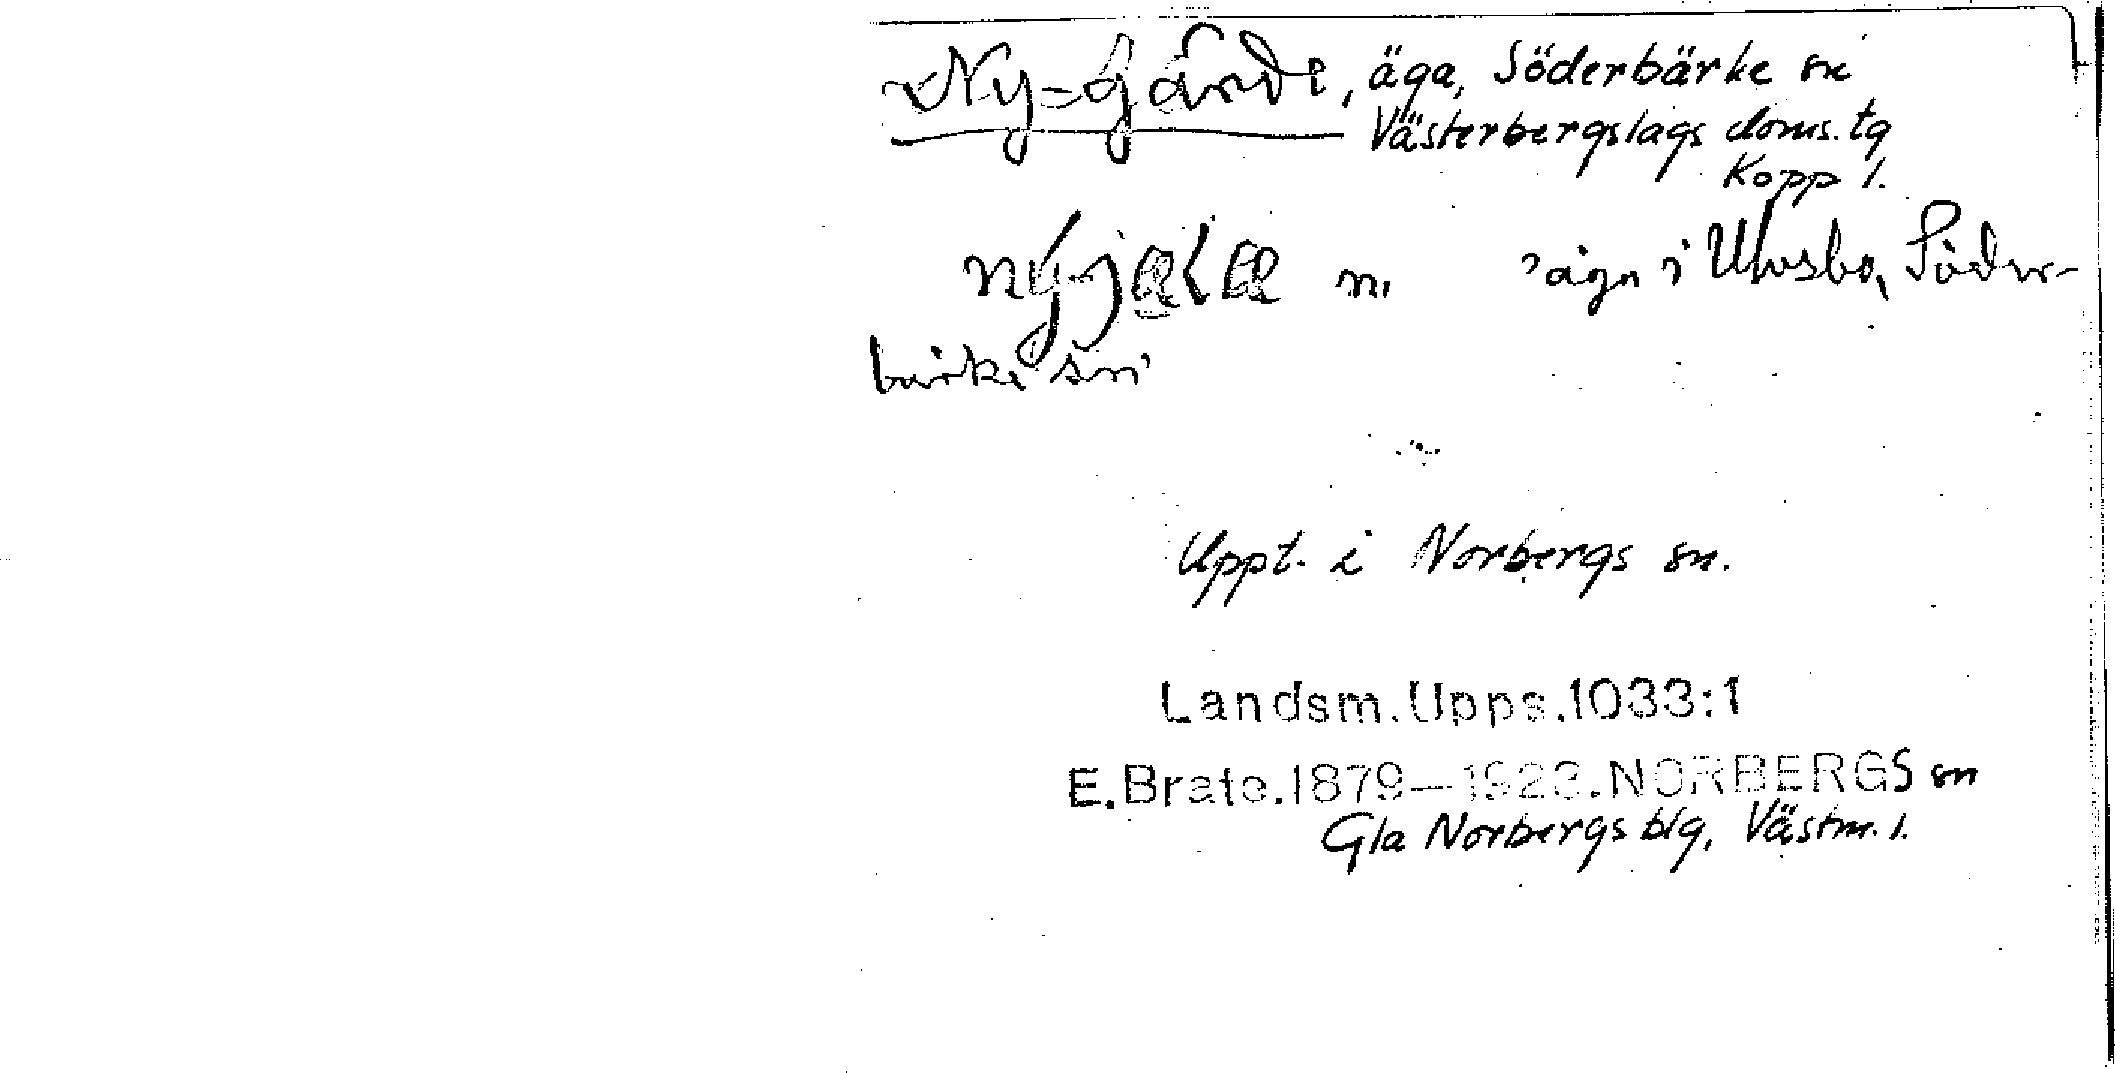 Ny-Gärde, äga, Söderbärke sn
Västerbergslags doms. tg
Kopp l.
n. äga i Ulvsbo, Söder-
bärke sn
Uppt. i Norbergs sn.
Landsm. Upps. 1033:1
E. Brate. 1879—1923. NORBERGS sn
Gla Norbergs blg, Västm. l.